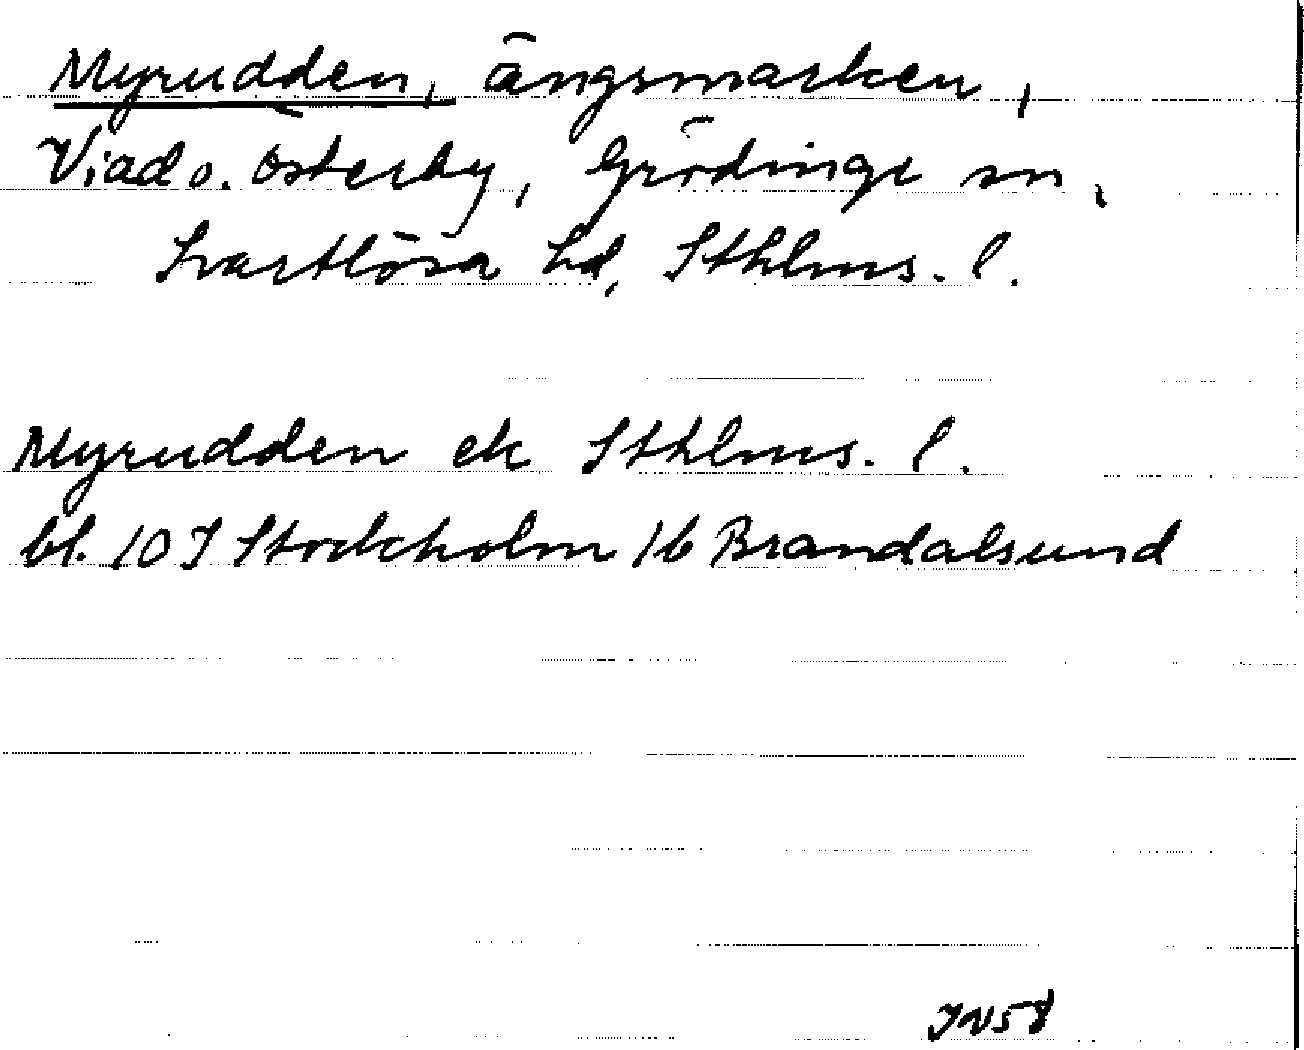 Myrudden, ängsmarken,
Viad o. Österby, Grödinge sn,
Svartlösa hd, Sthlms. l.
Myrudden ek Sthlms. l.
bl. 10I Stockholm 1b Brandalsund
IN58